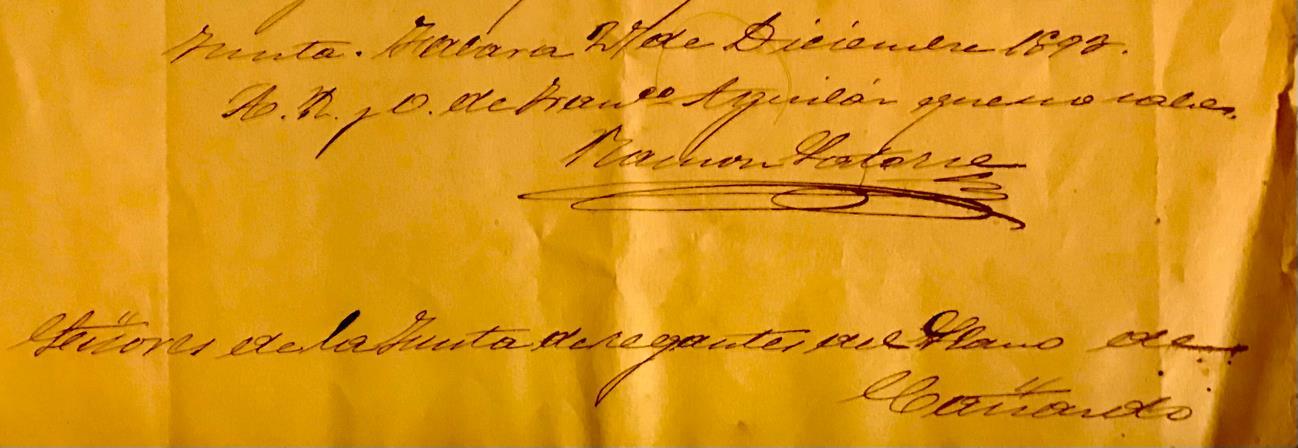 Junta. Jacara 27 de Diciembre 1892.
A. R. y O. de Franco Aguilar que no sabe.
Ramon Latorre
Señores de la Junta de regantes del Llano de
Cañardo